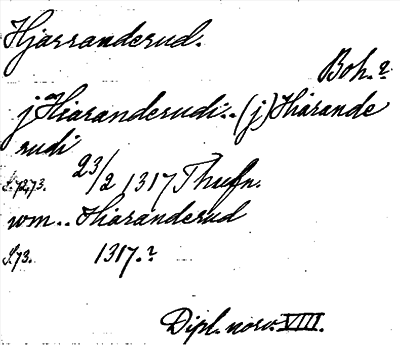 Hjarranderud.
Boh.?
j Hiaranderudi.. (j) Hiarande
rudi
S. 72, 73. 23/2 1317 Thufn.
wm.. Hiaranderud
S. 73. 1317.?
Dipl. norv. VIII.